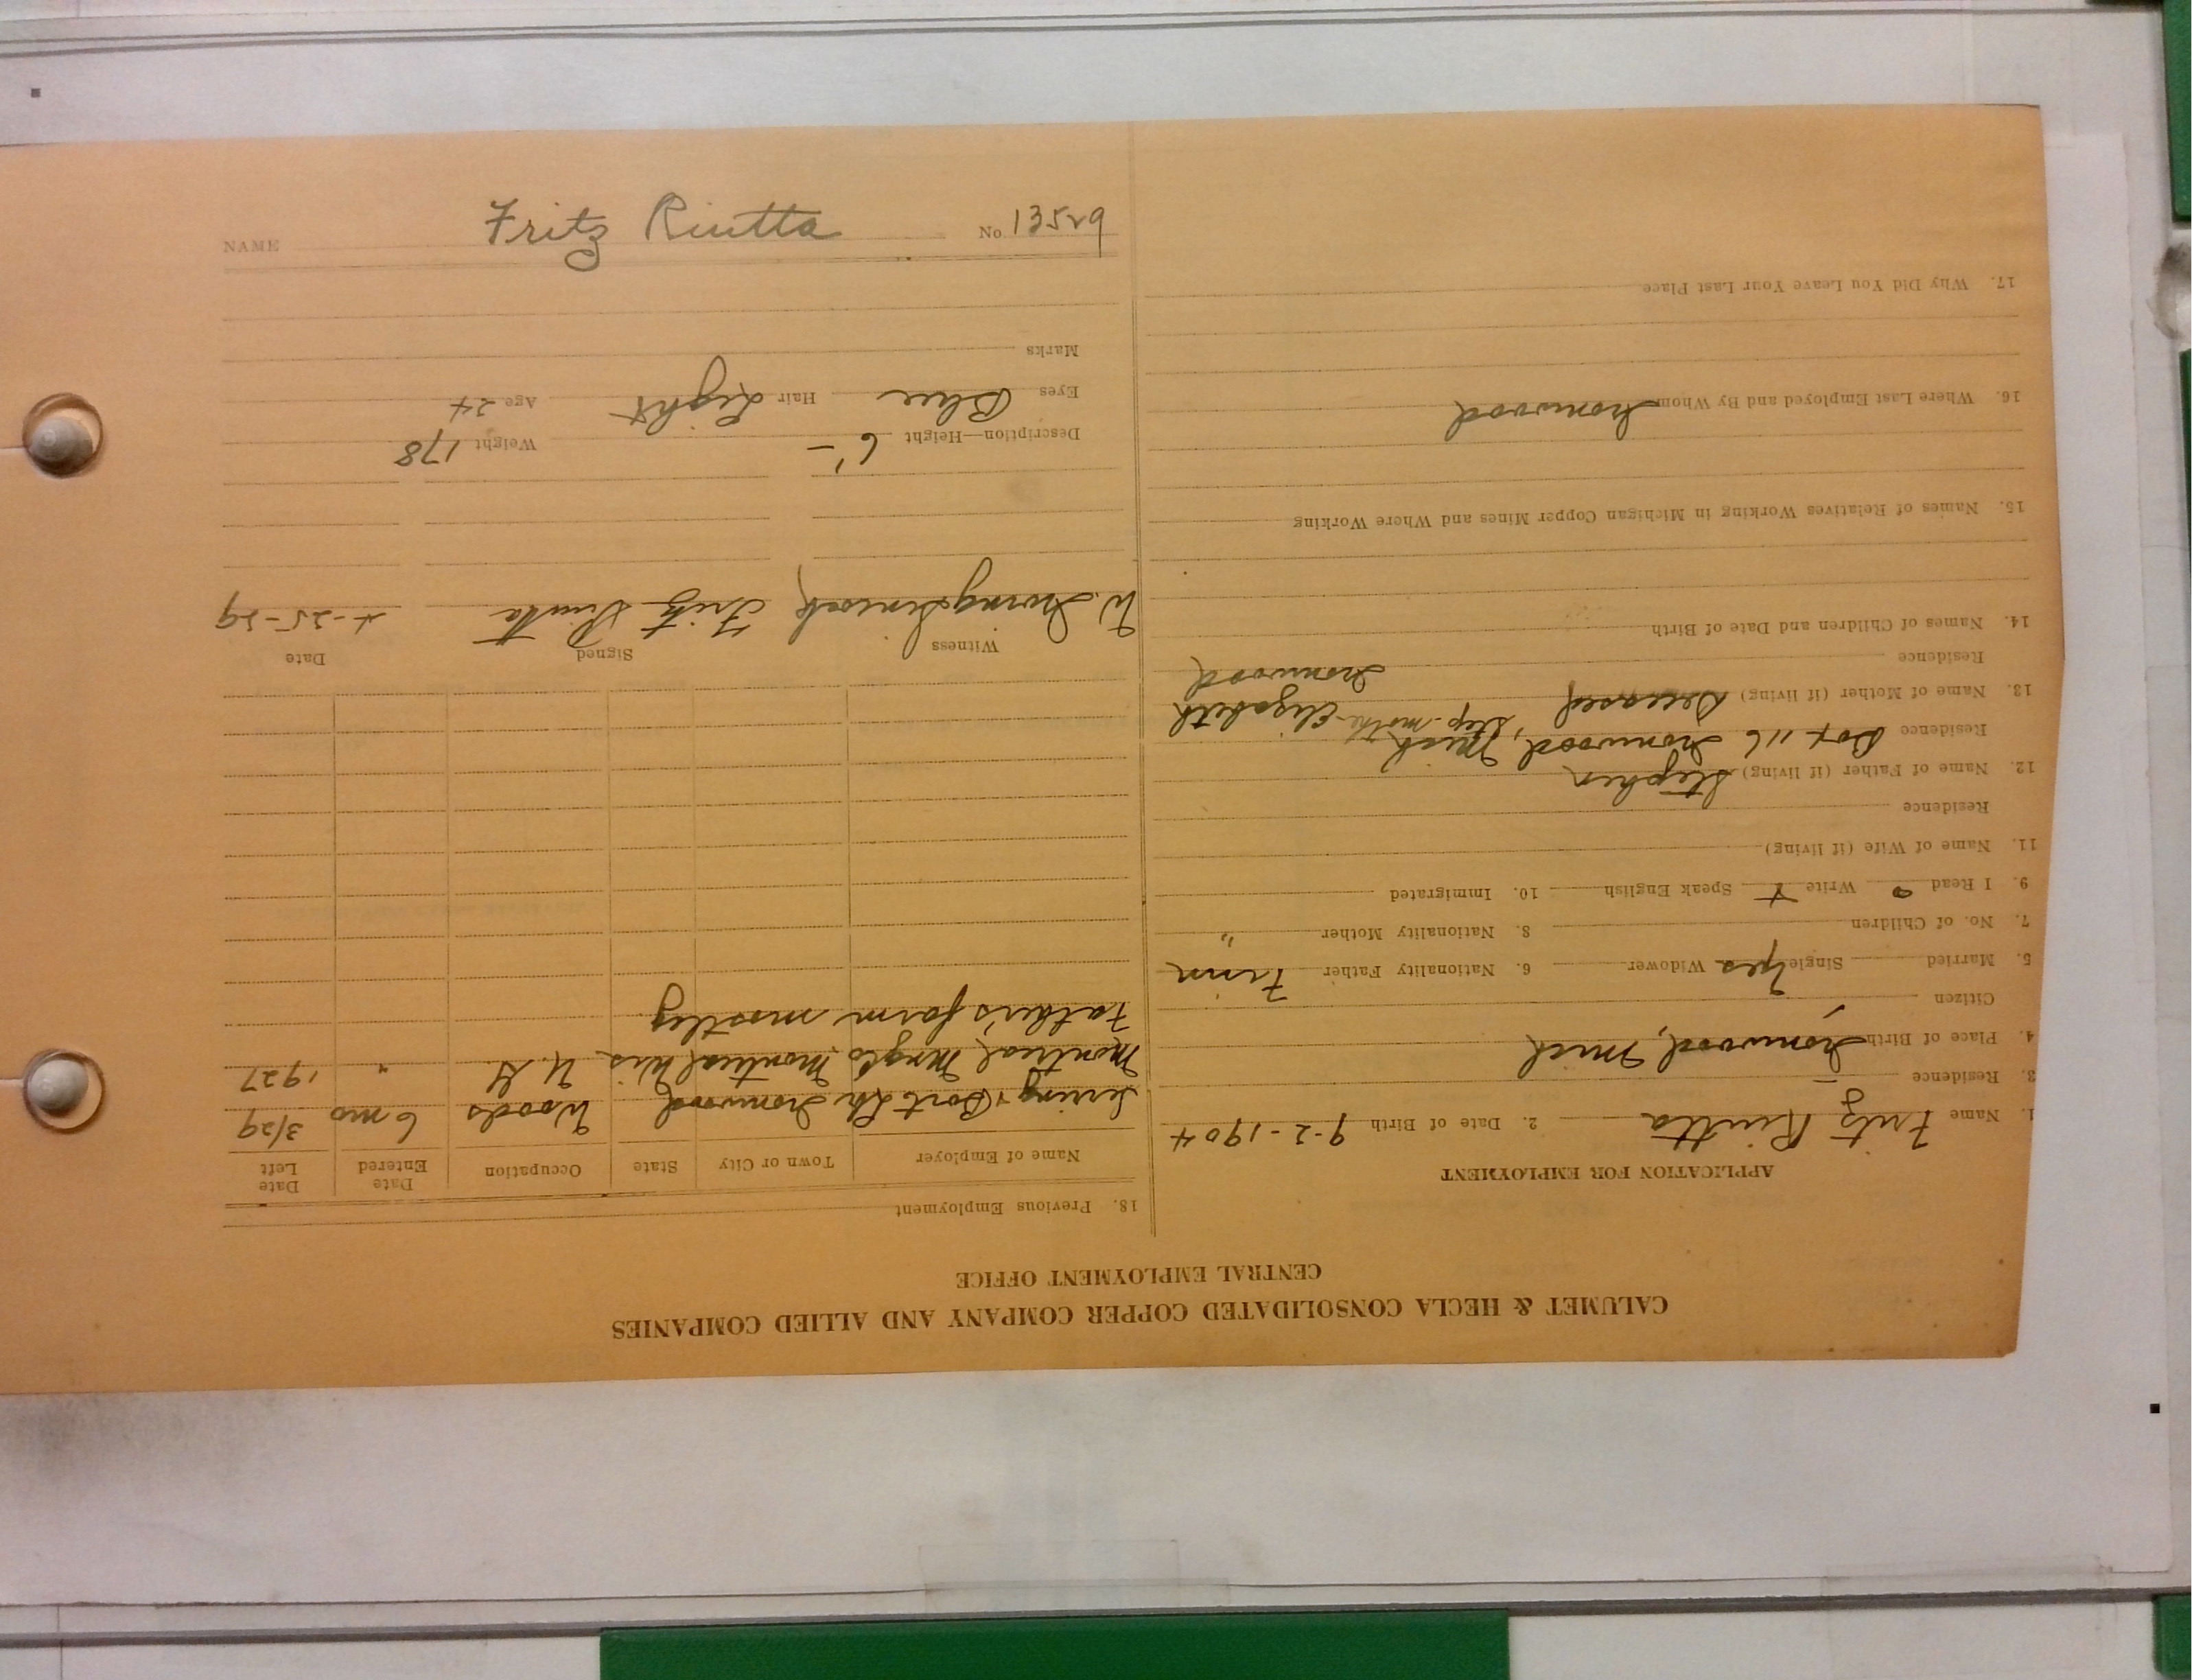 CALUMET & HECLA CONSOLIDATED COPPER COMPANY AND ALLIED COMPANIES
CENTRAL EMPLOYMENT OFFICE
APPLICATION FOR EMPLOYMENT
1. Name Fritz Riutta 2. Date of Birth 9-2-1904
3. Residence
4. Place of Birth Ironwood, Mich
Citizen
5. Married Single Yes Widower 6. Nationality Father Finn
7. No. of Children 8. Nationality Mother "
9. I Read Write Speak English 10. Immigrated
11. Name of Wife (if living)
Residence
12. Name of Father (if living) Stephen
Residence Box 116 Ironwood, Mich
13. Name of Mother (if living) Deceased, Step-mother Elizabeth
Residence Ironwood
14. Names of Children and Date of Birth
15. Names of Relatives Working in Michigan Copper Mines and Where Working
16. Where Last Employed and By Whom Ironwood
17. Why Did You Leave Your Last Place
18. Previous Employment
Name of Employer Town or City State Occupation Date Entered Date Left
Ironwood Woods 6 mo 3/29
Montreal Mng Co Montreal Wis. U.G. " 1927
Father's farm mostley
Witness Signed Date
W. Fritz Riutta 4-25-29
Description—Height 6'– Weight 178
Eyes Blue Hair Light Age 24
Marks
NAME Fritz Riutta No. 13529